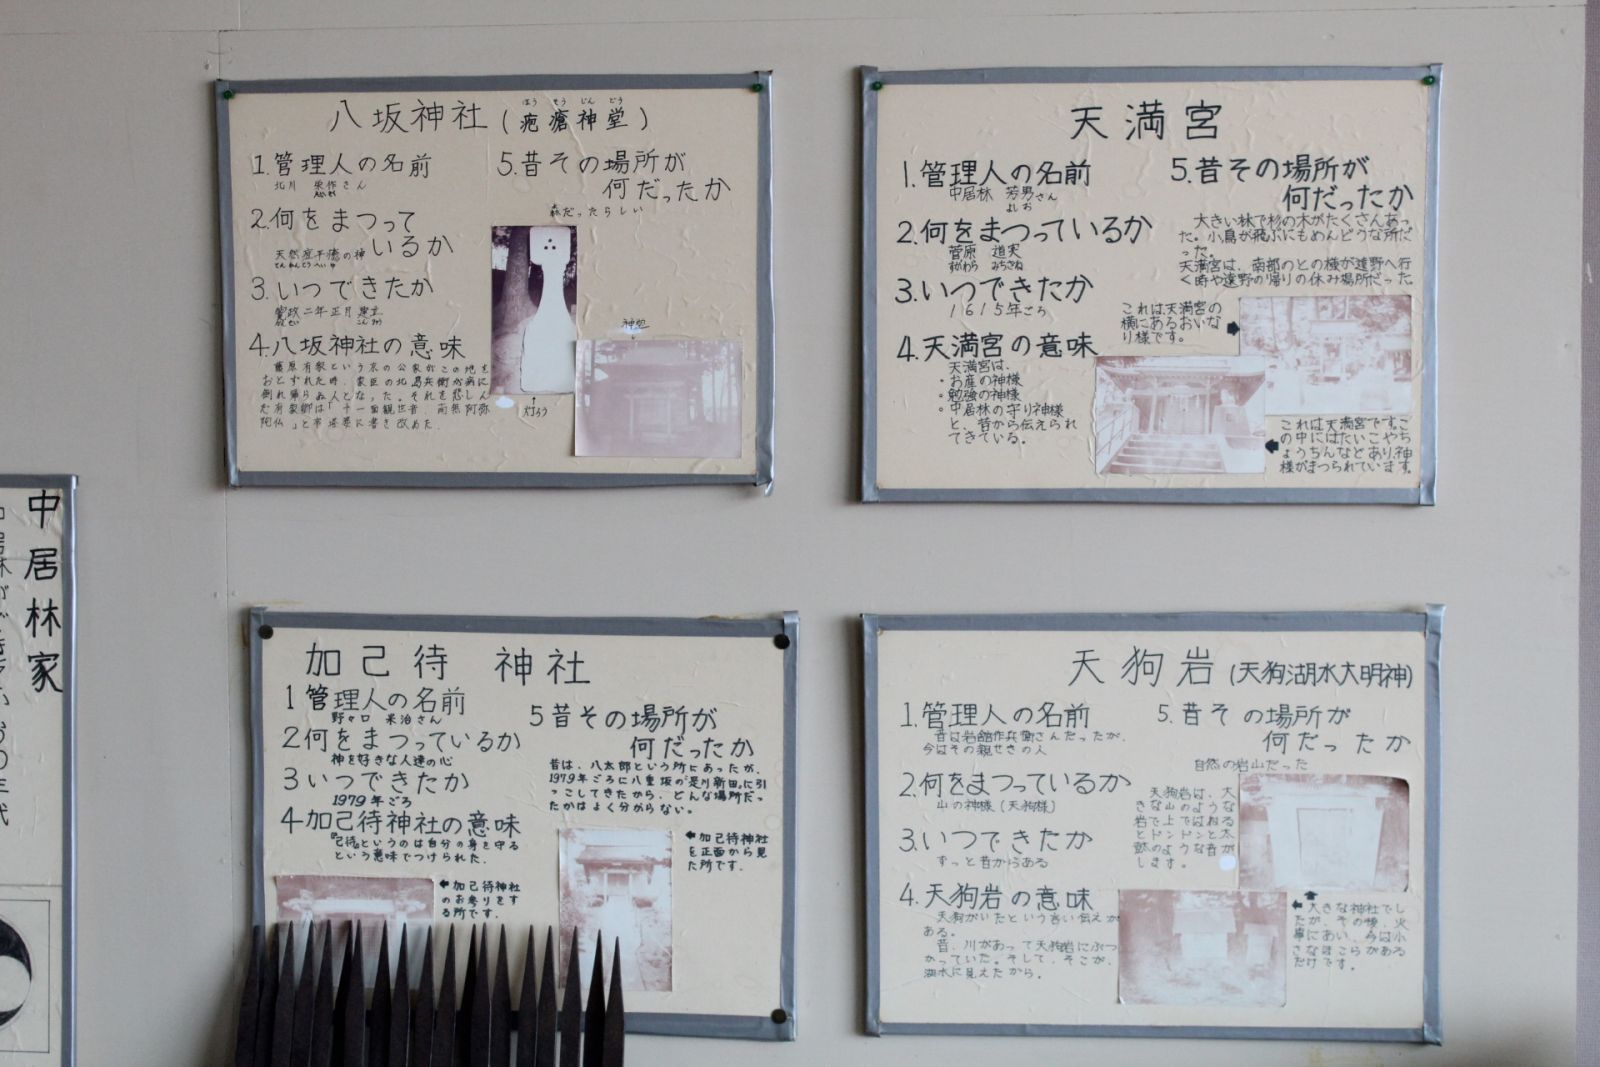 八坂神社(疱瘡神堂)
ほう そう じん どう
1.管理人の名前
北川 栄作さん
2.何をまつって
いるか
天然痘平癒の神
3.いつできたか
寛政二年正月建立
4.八坂神社の意味
藤原有家という京の公家がこの地を
おとずれた時、家臣の北島兵衛が病に
倒れ帰らぬ人となった。それを悲しん
だ有家卿は「十一面観世音、南無阿弥
陀仏」と
5.昔その場所が
何だったか
森だったらしい
灯ろう
天満宮
1.管理人の名前
中居林 芳男さん
よしお
2.何をまつっているか
菅原 道実
すがわら みちざね
3.いつできたか
1615年ごろ
4.天満宮の意味
天満宮は、
・お産の神様
・勉強の神様
・中居林の守り神様
と、昔から伝えられ
てきている。
5.昔その場所が
何だったか
大きい林で杉の木がたくさんあっ
た。小鳥が飛ぶにもめんどうな所だ
った。
天満宮は、南部のとの様が遠野へ行
く時や遠野の帰りの休み場所だった
これは天満宮の
横にあるおいな
り様です。
これは天満宮です。こ
の中にはたいこやち
ょうちんなどあり、神
様がまつられています。
中居林家
加己待 神社
1管理人の名前
野々口 果治さん
2何をまつっているか
神を好きな人達の心
3いつできたか
1979年ごろ
4加己待神社の意味
『己待』というのは自分の身を守る
という意味でつけられた。
5昔その場所が
何だったか
昔は、八太郎という所にあったが、
1979年ごろに八重坂の『是川新田』に引
っこしてきたから、どんな場所だっ
たかはよく分からない。
加己待神社
のお参りをす
る所です。
加己待神社
を正面から見
た所です。
天狗岩(天狗湖水大明神)
1.管理人の名前
昔は岩館作兵衛さんだったが、
今はその親せきの人
2.何をまつっているか
山の神様(天狗様)
3.いつできたか
ずっと昔からある
4.天狗岩の意味
天狗がいたという言い伝えが
ある。
昔、川があって天狗岩にぶつ
かっていた。そして、そこが、
湖水に見えたから。
5.昔その場所が
何だったか
自然の岩山だった
天狗岩は、大
きな山のような
岩で上ではねる
とドンドンと太
鼓のような音が
します。
大きな神社でし
たが、その後、火
事にあい、今は小
さなほこらがある
だけです。